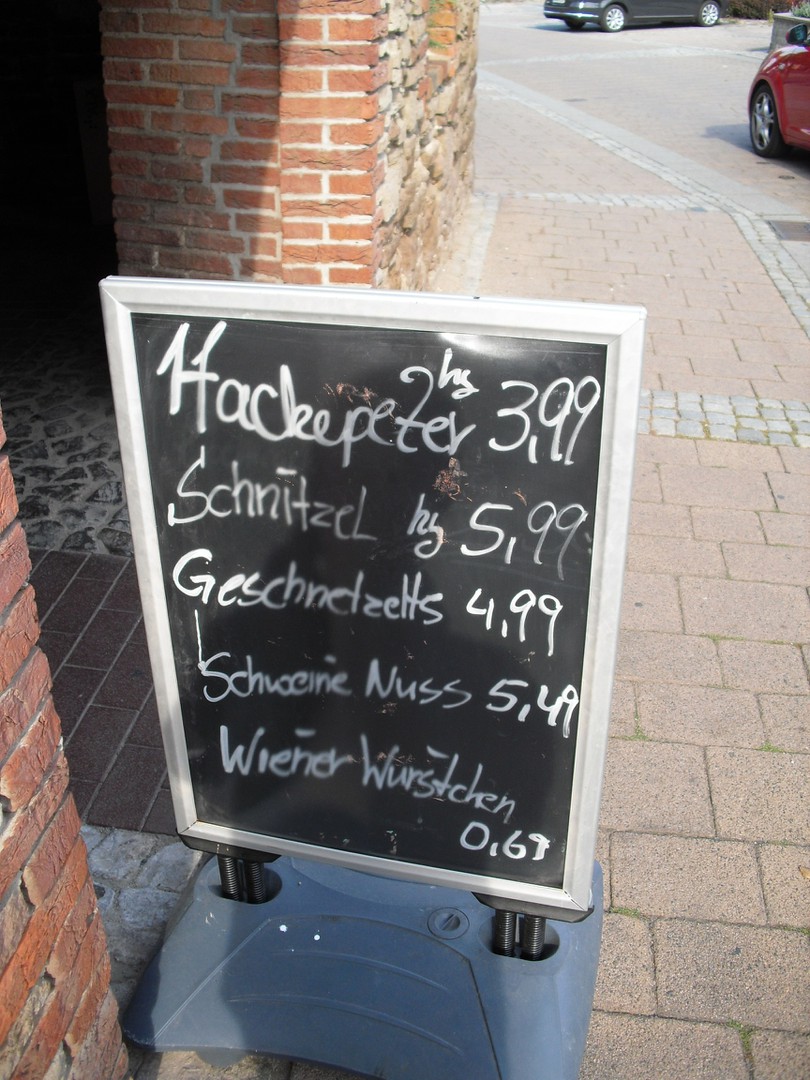 Hackepeter kg 3,99
Schnitzel kg 5,99
Geschnetzelts 4,99
Schweine Nuss 5,49
Wiener Würstchen
0,69